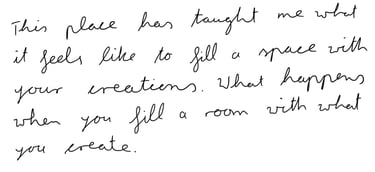 This place has taught me what
it feels like to fill a space with
your creations. What happens
when you fill a room with what
you create.